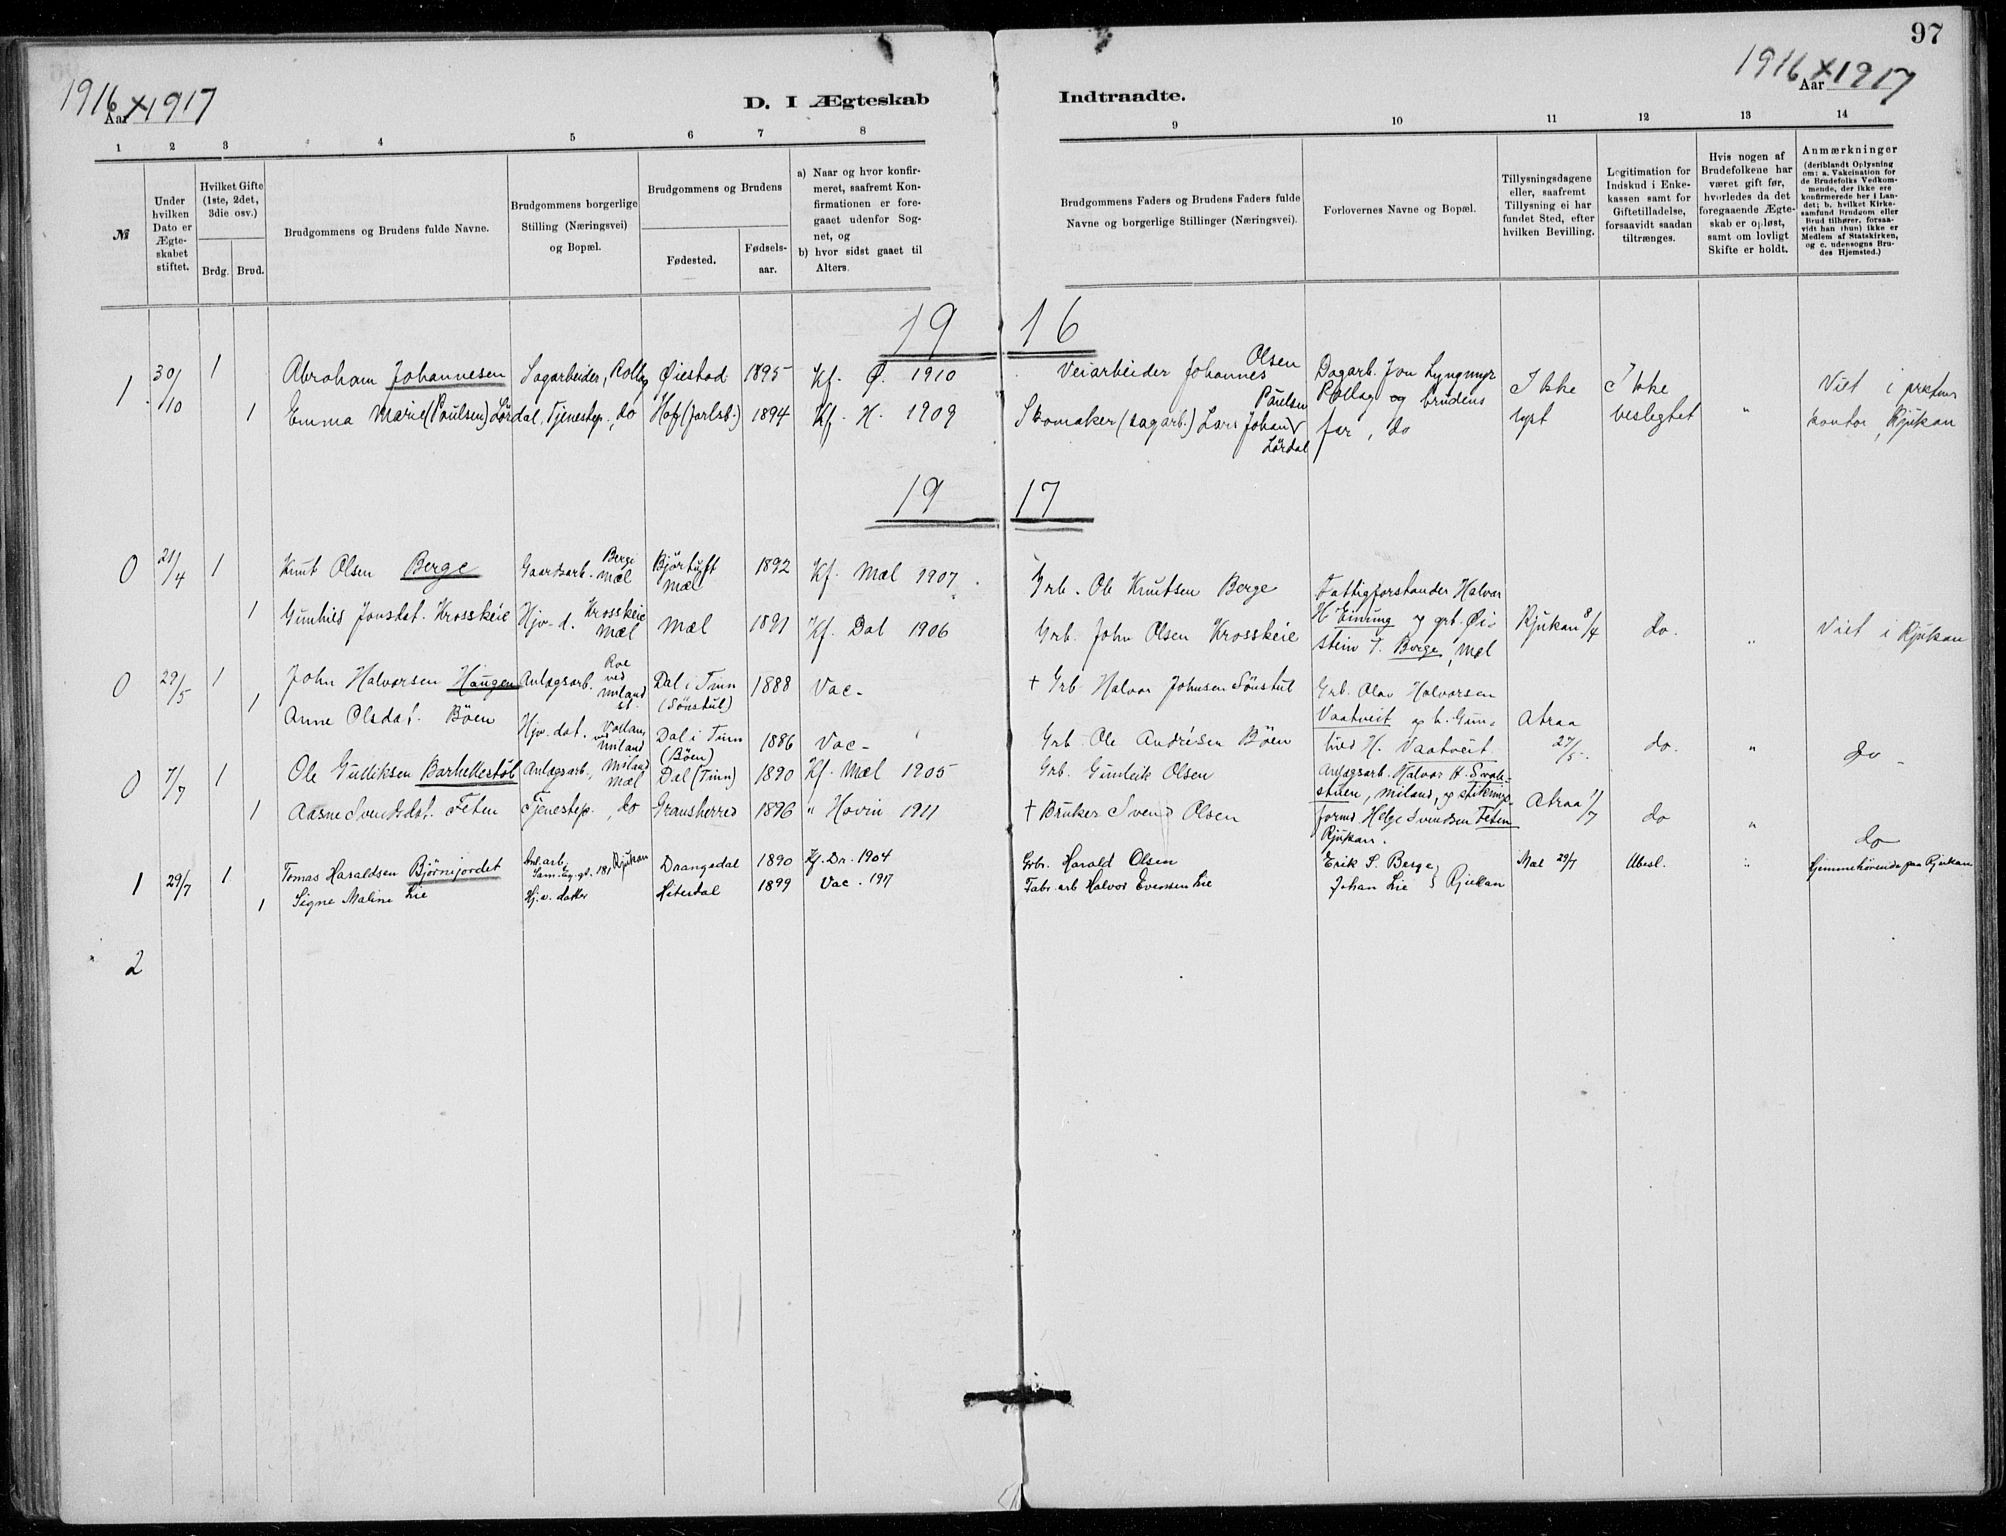 97
1916 x 1917
Aar
D. I Ægteskab
Indtraadte.
1916 x 1917
Aar
1 2 3 4 5 6 7 8
9 10 11 12 13 14
№
Under hvilken Dato er Ægteskabet stiftet.
Hvilket Gifte (1ste, 2det, 3die osv.)
Brdg. Brud.
Brudgommens og Brudens fulde Navne.
Brudgommens borgerlige Stilling (Næringsvei) og Bopæl.
Brudgommens og Brudens
Fødested.
Fødselsaar.
a) Naar og hvor konfirmeret, saafremt Konfirmationen er foregaaet udenfor Sognet, og
b) hvor sidst gaaet til Alters.
Brudgommens Faders og Brudens Faders fulde Navne og borgerlige Stillinger (Næringsvei).
Forlovernes Navne og Bopæl.
Tillysningsdagene eller, saafremt Tillysning ei har fundet Sted, efter hvilken Bevilling.
Legitimation for Indskud i Enkekassen samt for Giftetilladelse, forsaavidt saadan tiltrænges.
Hvis nogen af Brudefolkene har været gift før, hvorledes da det foregaaende Ægteskab er opløst, samt om lovligt Skifte er holdt.
Anmærkninger
(deriblandt Oplysning om: a. Vakcination for de Brudefolks Vedkommende, der ikke ere konfirmerede her i Landet; b. hvilket Kirkesamfund Brudgom eller Brud tilhører, forsaavidt han (hun) ikke er Medlem af Statskirken, og c. udensogns Brudes Hjemsted.)
1916
1 30/10 1 Abraham Johannesen Sagarbeider, Rollag Øiestad 1895 Kf. Ø. 1910 Veiarbeider Johannes Olsen Dagarb. Jon Lyngmyr Ikke Ikke Viet i
1 Emma Marie (Paulsen) Lørdal, Tjenestep., do Hof (Jarlsb.) 1894 Kf. H. 1909 Skomaker (sagarb.) Lars Johan Paulsen Lørdal Rollag og brudens far, do lyst beslegtet " kontor, Rjukan
1917
0 21/4 1 Knut Olsen Berge Gaardsarb. Berge Mæl Mæl 1892 Kf. Mæl 1907. Grb. Ole Knutsen Berge Fattigforstander Halvor
1 Gunhild Jonsdat. Krosskeie Hjv. d. Krosskeie Mæl Mæl 1891 Kf. Dal 1906 Grb. John Olsen Krosskeie H. Eining og grb. Øistein T. Berge, Mæl Rjukan 8/4 do. " Viet i Rjukan
0 29/5 1 John Halvorsen Haugen Anlægsarb. ved Miland Dal i Tinn (Sønstul) 1888 Vac. + Grb. Halvor Johnsen Sønstul Grb. Olav Halvorsen
1 Anne Olsdat. Bøen Hjv. dat. ved Miland Dal i Tinn (Bøen) 1886 Vac. Grb. Ole Andrésen Bøen Vaatveit og h. Gunhild H. Vaatveit. Atraa 27/5. do. " do
0 7/7 1 Ole Gulliksen Anlægsarb., Miland Mæl Dal (Tinn) 1890 Kf. Mæl 1905 Grb. Gunleik Olsen Anlægsarb. Halvor H.
1 Aasne Svendsdat. Feten Tjenestep., do Gransherred 1896 " Hovin 1911 + Bruker Svend Olsen Miland, og formd. Helge Svendsen Feten Rjukan. Atraa 1/7 do " do
1 29/7 1 Tomas Haraldsen Bjørnejordet Anl. arb. 181, Rjukan Drangedal 1890 Kf. Dr. 1904 Grbr. Harald Olsen Erik S. Berge Mæl 29/7 Ubesl. " Hjemmehørende paa Rjukan
1 Signe Maline Lie Hj. v. datter Hiterdal 1899 Vac. 1917 Fabr. arb Halvor Evensen Lie Johan Lie Rjukan
2